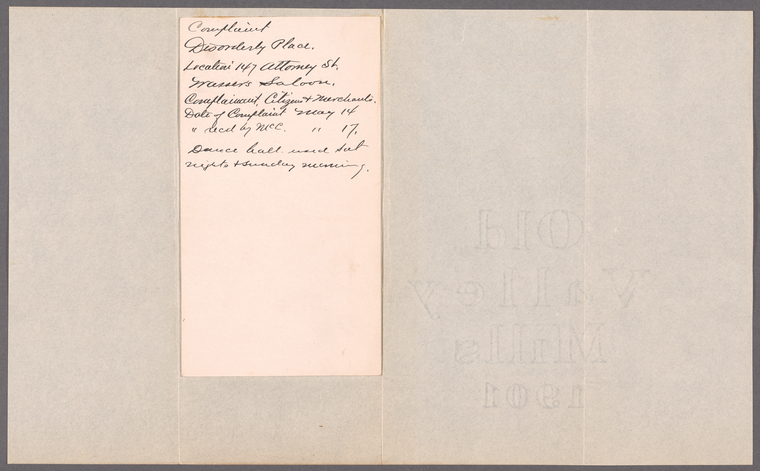 Complaint
Disorderly Place.
Location 147 Attorney St.
Saloon.
Complainant, Citizens & Merchants.
Date of Complaint May 14
" recd by McC. " 17.
Dance hall used Sat
nights & Sunday morning.
Old
Valley
Mills
1901